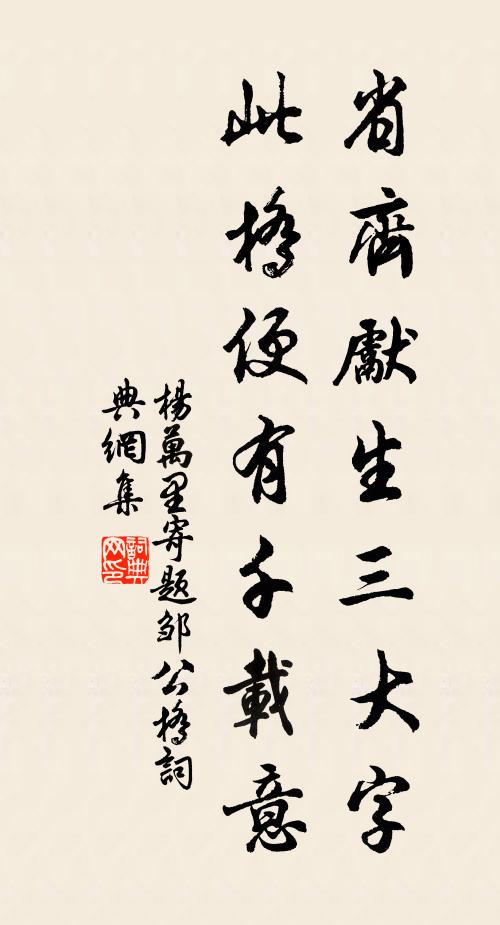 省齊獻生三大字
此橋便有千載意
楊萬里寄题邹公橋詞
典網集
詞典网印